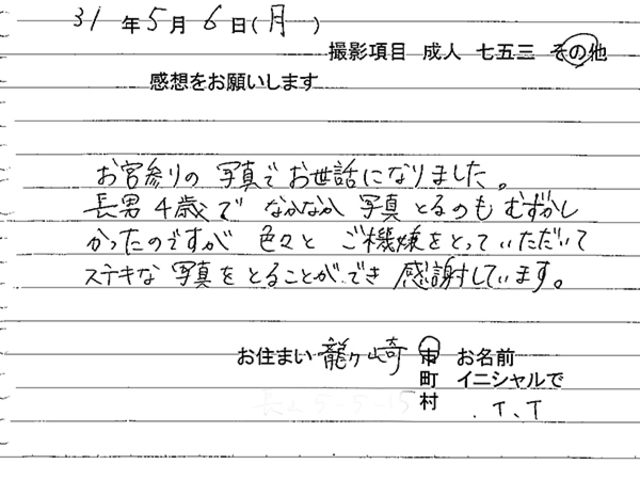 31 年 5月 6日(月)
撮影項目 成人 七五三 その他
感想をお願いします
お宮参りの 写真で お世話になりました。
長男 4歳で なかなか 写真 とるのも むずかし
かったのですが 色々と ご機嫌をとっていただいて
ステキな 写真を とることができ 感謝しています。
お住まい 龍ヶ崎 市 お名前
町 イニシャルで
村 T、T